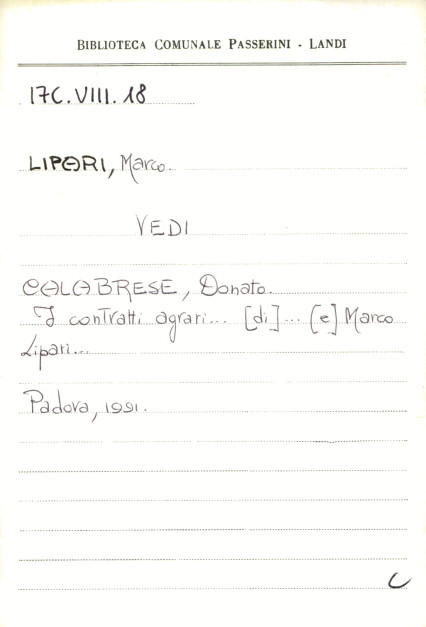 BIBLIOTECA COMUNALE PASSERINI - LANDI
17C.VIII.18
LIPARI, Marco.
VEDI
CALABRESE, Donato.
I contratti agrari... [di]... [e] Marco
Lipari...
Padova, 1991.
C